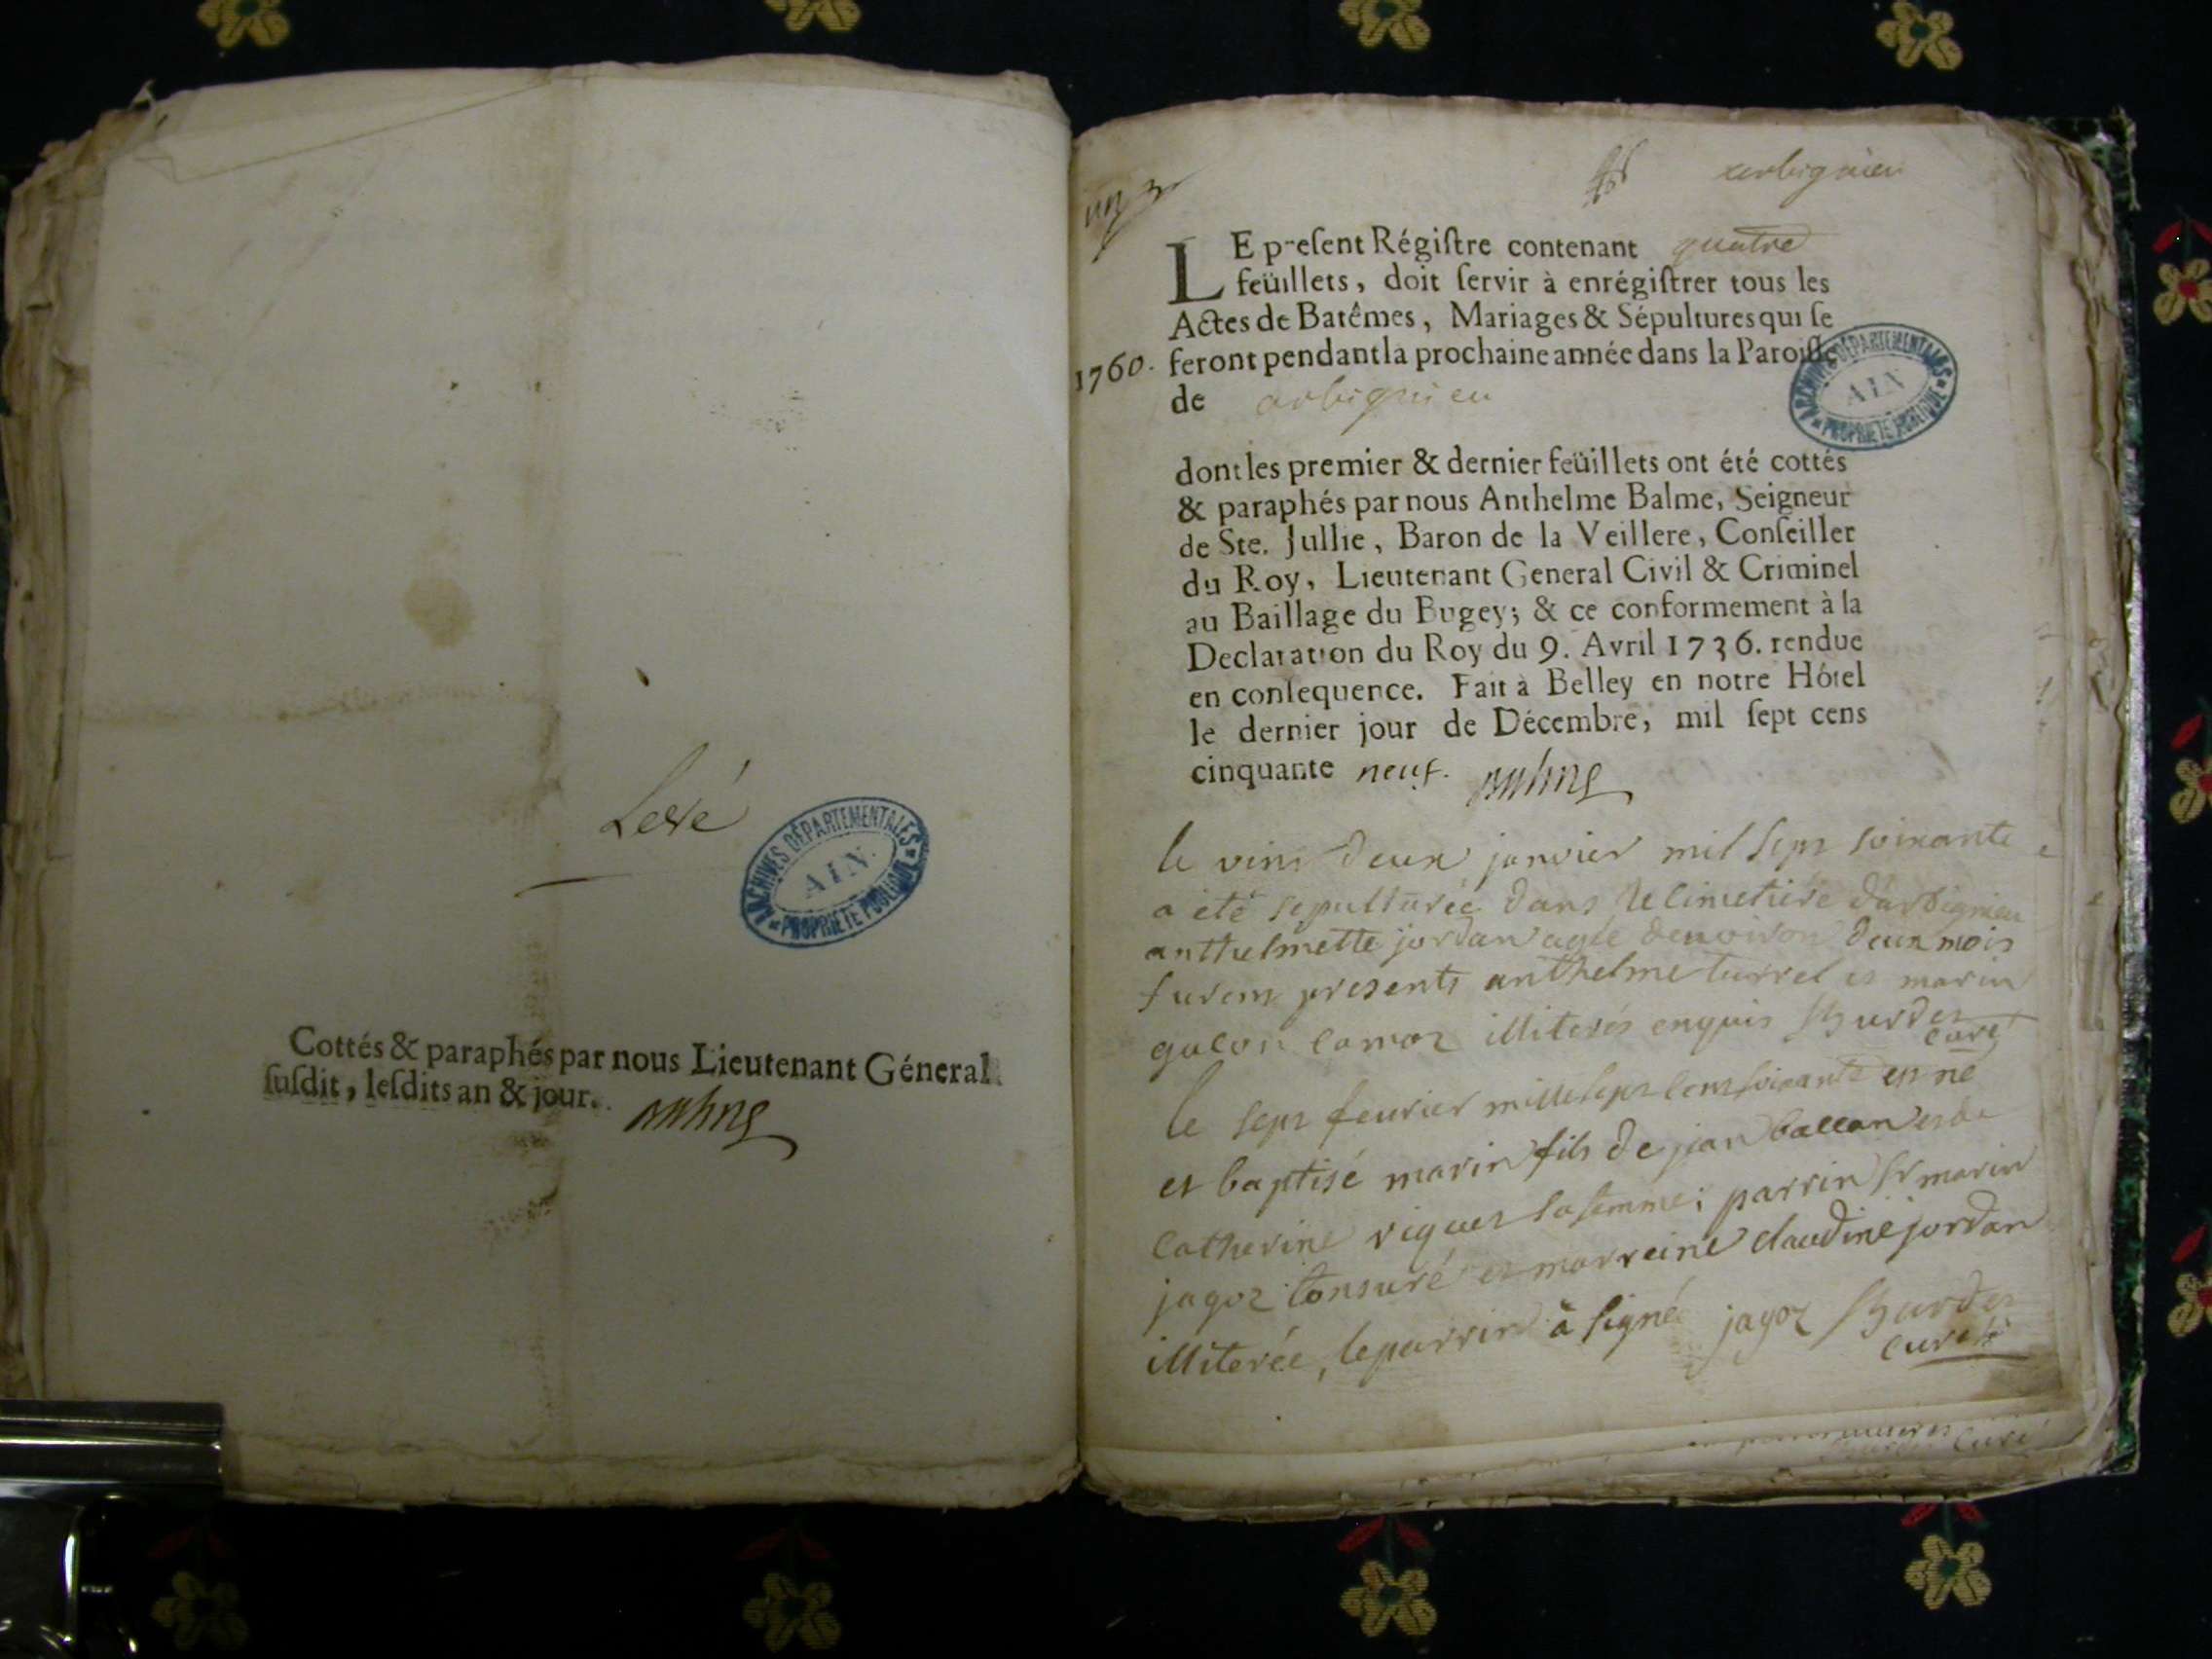 Levé
ARCHIVES DÉPARTEMENTALES
AIN
PROPRIÉTÉ PUBLIQUE
Cottés & paraphés par nous Lieutenant Géneral
ſuſdit, leſdits an & jour.
un
arbignieu
LE preſent Régiſtre contenant quatre
feüillets, doit ſervir à enrégiſtrer tous les
Actes de Batêmes, Mariages & Sépultures qui ſe
1760. feront pendant la prochaine année dans la Paroiſſe
de arbignieu
ARCHIVES DÉPARTEMENTALES
AIN
PROPRIÉTÉ PUBLIQUE
dont les premier & dernier feüillets ont été cottés
& paraphés par nous Anthelme Balme, Seigneur
de Ste. Jullie, Baron de la Veillere, Conſeiller
du Roy, Lieutenant General Civil & Criminel
au Baillage du Bugey; & ce conformement à la
Declaration du Roy du 9. Avril 1736. rendue
en conſequence. Fait à Belley en notre Hôtel
le dernier jour de Décembre, mil ſept cens
cinquante neuf.
le vint deux janvier mil sept soixante
a été sepulturée dans le cimetiére d'arbignieu
anthelmette jordan agée denviron deux mois
furent presents anthelme turrel et marin
illiterés enquis
curé
le sept feurier mille sept cent soixante est né
et baptisé marin fils de jean ballan et de
catherine riguet sa femme; parrin sr marin
jagoz tonsuré et marreine claudine jordan
illiterée, le parrin à signé jagoz
curé
curé